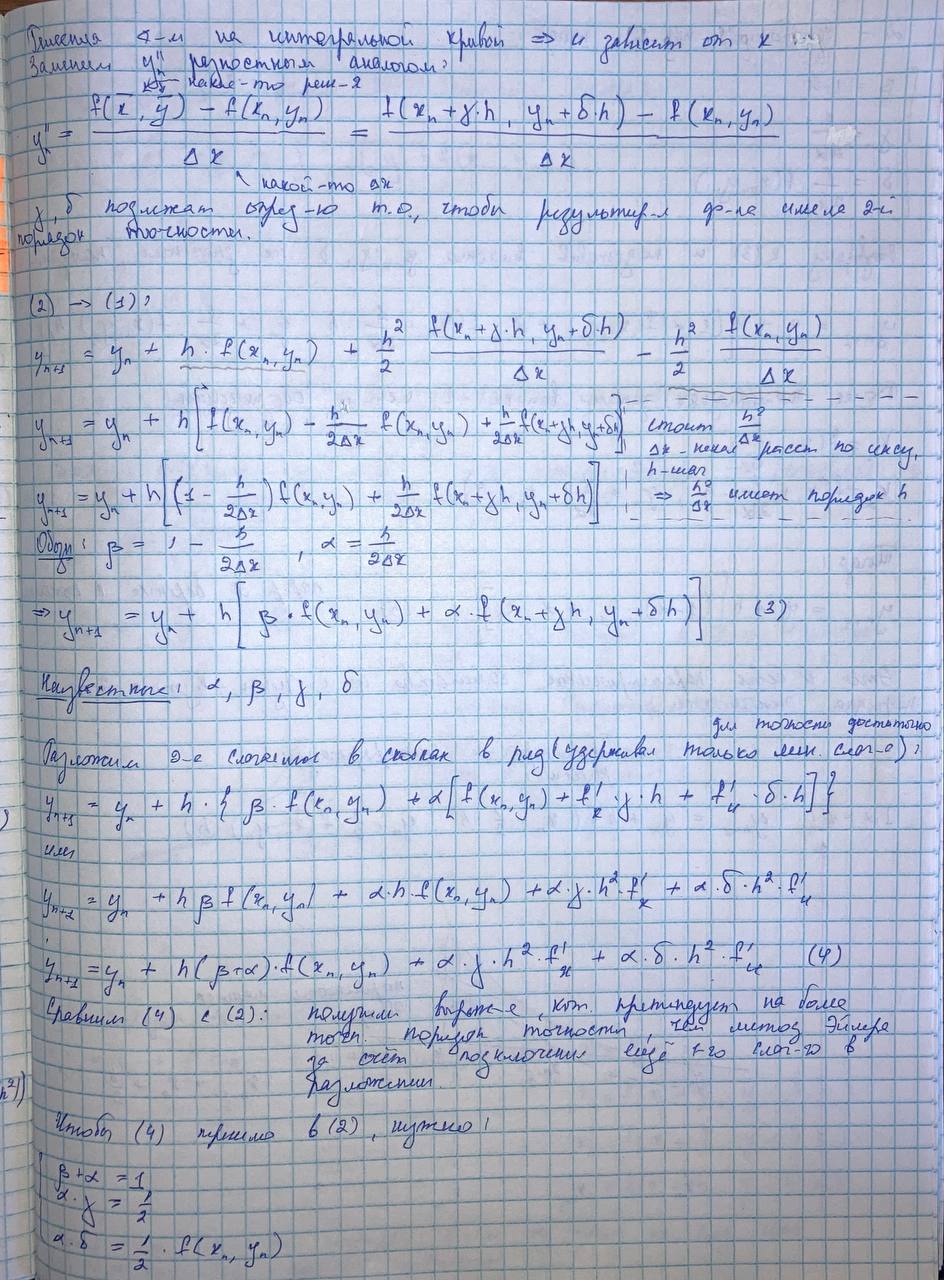 на интегральной кривой ⇒ и зависит от x
Заменим y''ₙ разностным аналогом:
какие-то реш-я
y''ₙ = (f(x̄, ȳ) − f(xₙ, yₙ)) / Δx = (f(xₙ+γ·h, yₙ+δ·h) − f(xₙ, yₙ)) / Δx
какой-то Δx
γ, δ подлжат опред-ю т.о., чтобы результир-я ф-ла имела 2-й
порядок точности.
(2) → (1):
yₙ₊₁ = yₙ + h·f(xₙ, yₙ) + h²/2 f(xₙ+γ·h, yₙ+δ·h)/Δx − h²/2 f(xₙ, yₙ)/Δx
yₙ₊₁ = yₙ + h[f(xₙ, yₙ) − h/2Δx f(xₙ, yₙ) + h/2Δx f(xₙ+γh, yₙ+δh)] стоит h²/Δx
Δx - некое расст по иксу,
h-шаг
yₙ₊₁ = yₙ + h[(1 − h/2Δx) f(xₙ, yₙ) + h/2Δx f(xₙ+γh, yₙ+δh)] ⇒ h²/Δx имеет порядок h
Обозн: β = 1 − h/2Δx, α = h/2Δx
⇒ yₙ₊₁ = yₙ + h[β·f(xₙ, yₙ) + α·f(xₙ+γh, yₙ+δh)] (3)
Неизвестные: α, β, γ, δ
для точности достаточно
Разложим 2-е слагаемое в скобках в ряд (удерживая только лин. слаг-е):
yₙ₊₁ = yₙ + h·{β·f(xₙ, yₙ) + α[f(xₙ, yₙ) + f'ₓ·γ·h + f'ᵧ·δ·h]}
или
yₙ₊₁ = yₙ + hβf(xₙ, yₙ) + α·h·f(xₙ, yₙ) + α·γ·h²·f'ₓ + α·δ·h²·f'ᵧ
yₙ₊₁ = yₙ + h(β+α)·f(xₙ, yₙ) + α·γ·h²·f'ₓ + α·δ·h²·f'ᵧ (4)
Сравним (4) с (2): получили выраж-е, кот. претендует на более
точн. порядок точности, чем метод Эйлера
за счёт подключения ещё 1-го слаг-го в
разложении.
h²))
Чтобы (4) перешло в (2), нужно:
β+α = 1
α·γ = 1/2
α·δ = 1/2·f(xₙ, yₙ)